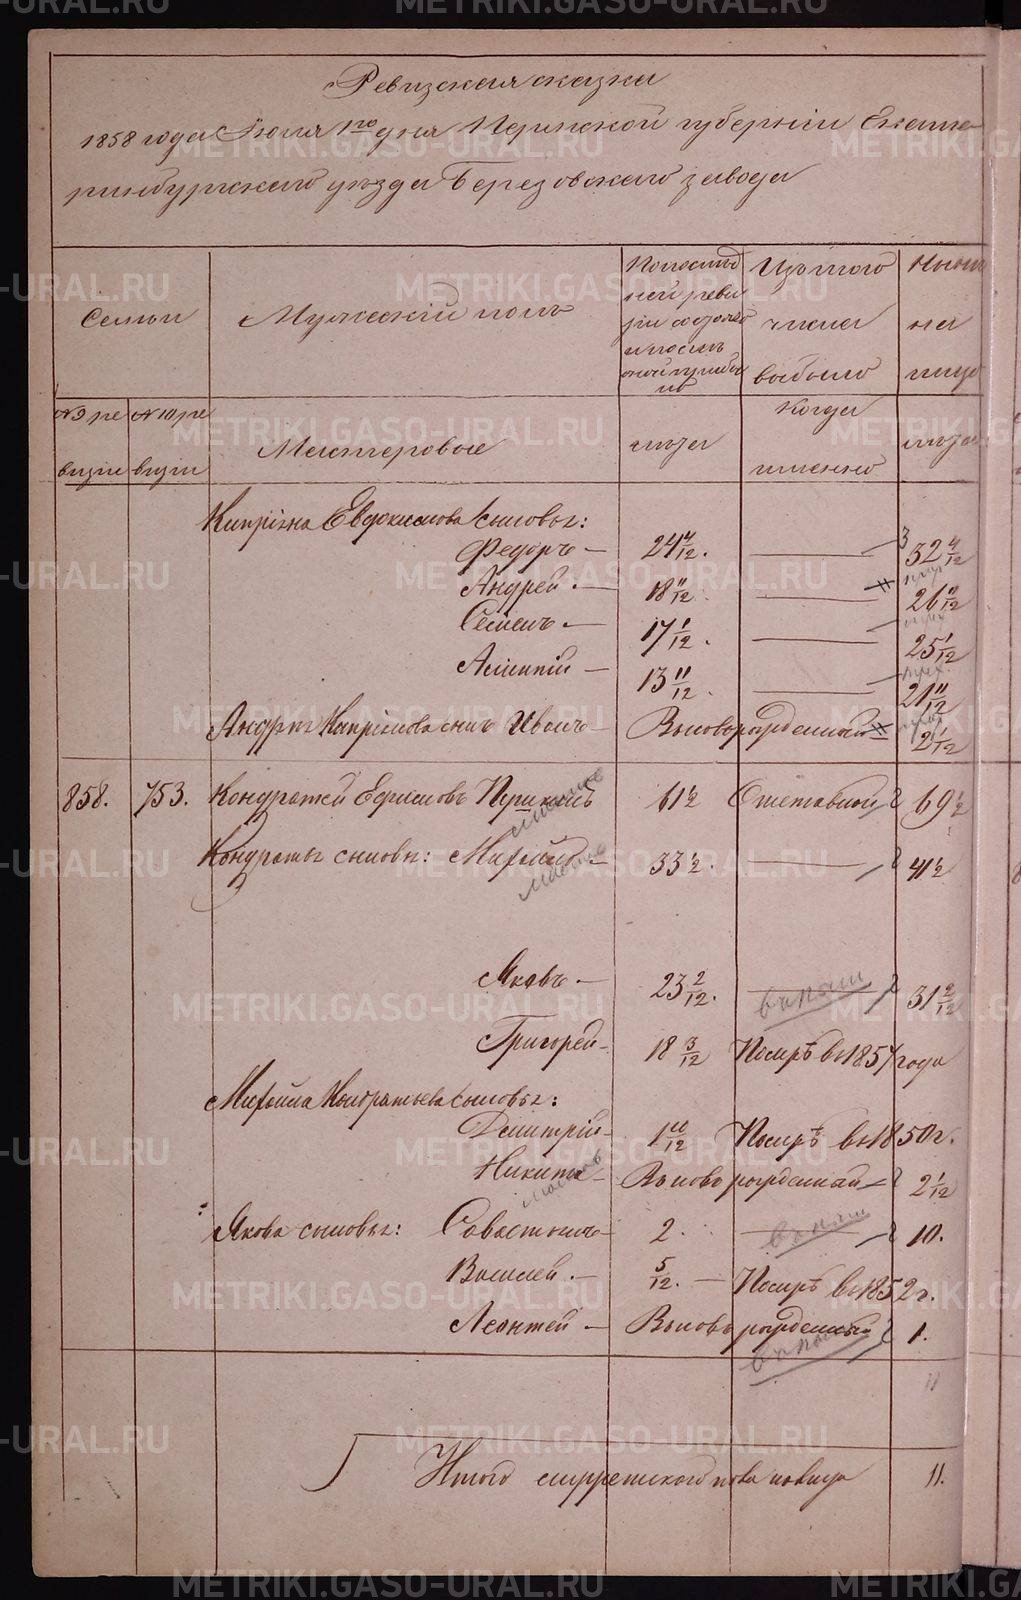 Ревизская сказка
1858 года Июля 1го дня Пермской губернiи Екате-
ринбургскаго уезда Березовскаго завода
Семьи
Мужескiй полъ
По последней ревизiи состояло и после оной прибыло
Изъ того числа выбыло
Ныне на лицо
№ 9 ревизiи
№ 10 ревизiи
Мастеровые
лета
когда именно
лета
Кипрiяна Евдокимова сыновья:
Федоръ — 24 4/12. — 3 32 4/12
Андрей — 18 11/12 — 26 11/12
Семенъ — 17 1/12. — 25 1/12
Алимпiй — 13 11/12. — 21 11/12
Андрея Кипрiянова сынъ Иванъ — Вновьрожденный 2 1/12
858. 753. Кондратей Ефимовъ 61 1/2 Отставной 69 1/2
Кондратья сыновья: Михайло — 33 1/2. — 41 1/2
Яковъ — 23 2/12. — 31 2/12
Григорей — 18 3/12 Помръ въ 1857 года
Михайла Кондратьева сыновья:
Дмитрiй — 1 10/12 Помръ въ 1850 г.
Никита — Вновьрожденный 2 1/12
Якова сыновья: Савастьянъ — 2. — 10.
Василей — 5/12. — Помръ въ 1852 г.
Леонтей — Вновьрожденный 1.
11
Итого мужескаго пола налицо 11.
METRIKI.GASO-URAL.RU